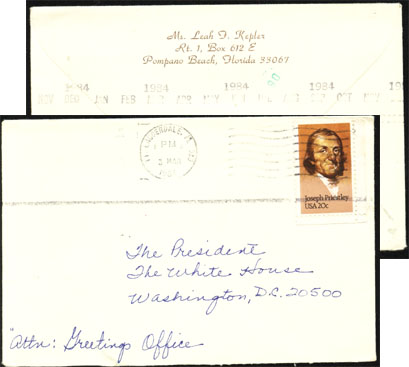 Ms. Leah F. Kepler
Rt. 1, Box 612 E
Pompano Beach, Florida 33067
1984 1984 1984 1984
NOV DEC JAN FEB APR MAY OCT NOV
LAUDERDALE, FL
PM
2 MAR
Joseph Priestley
USA 20c
The President
The White House
Washington, D.C. 20500
"Attn: Greetings Office